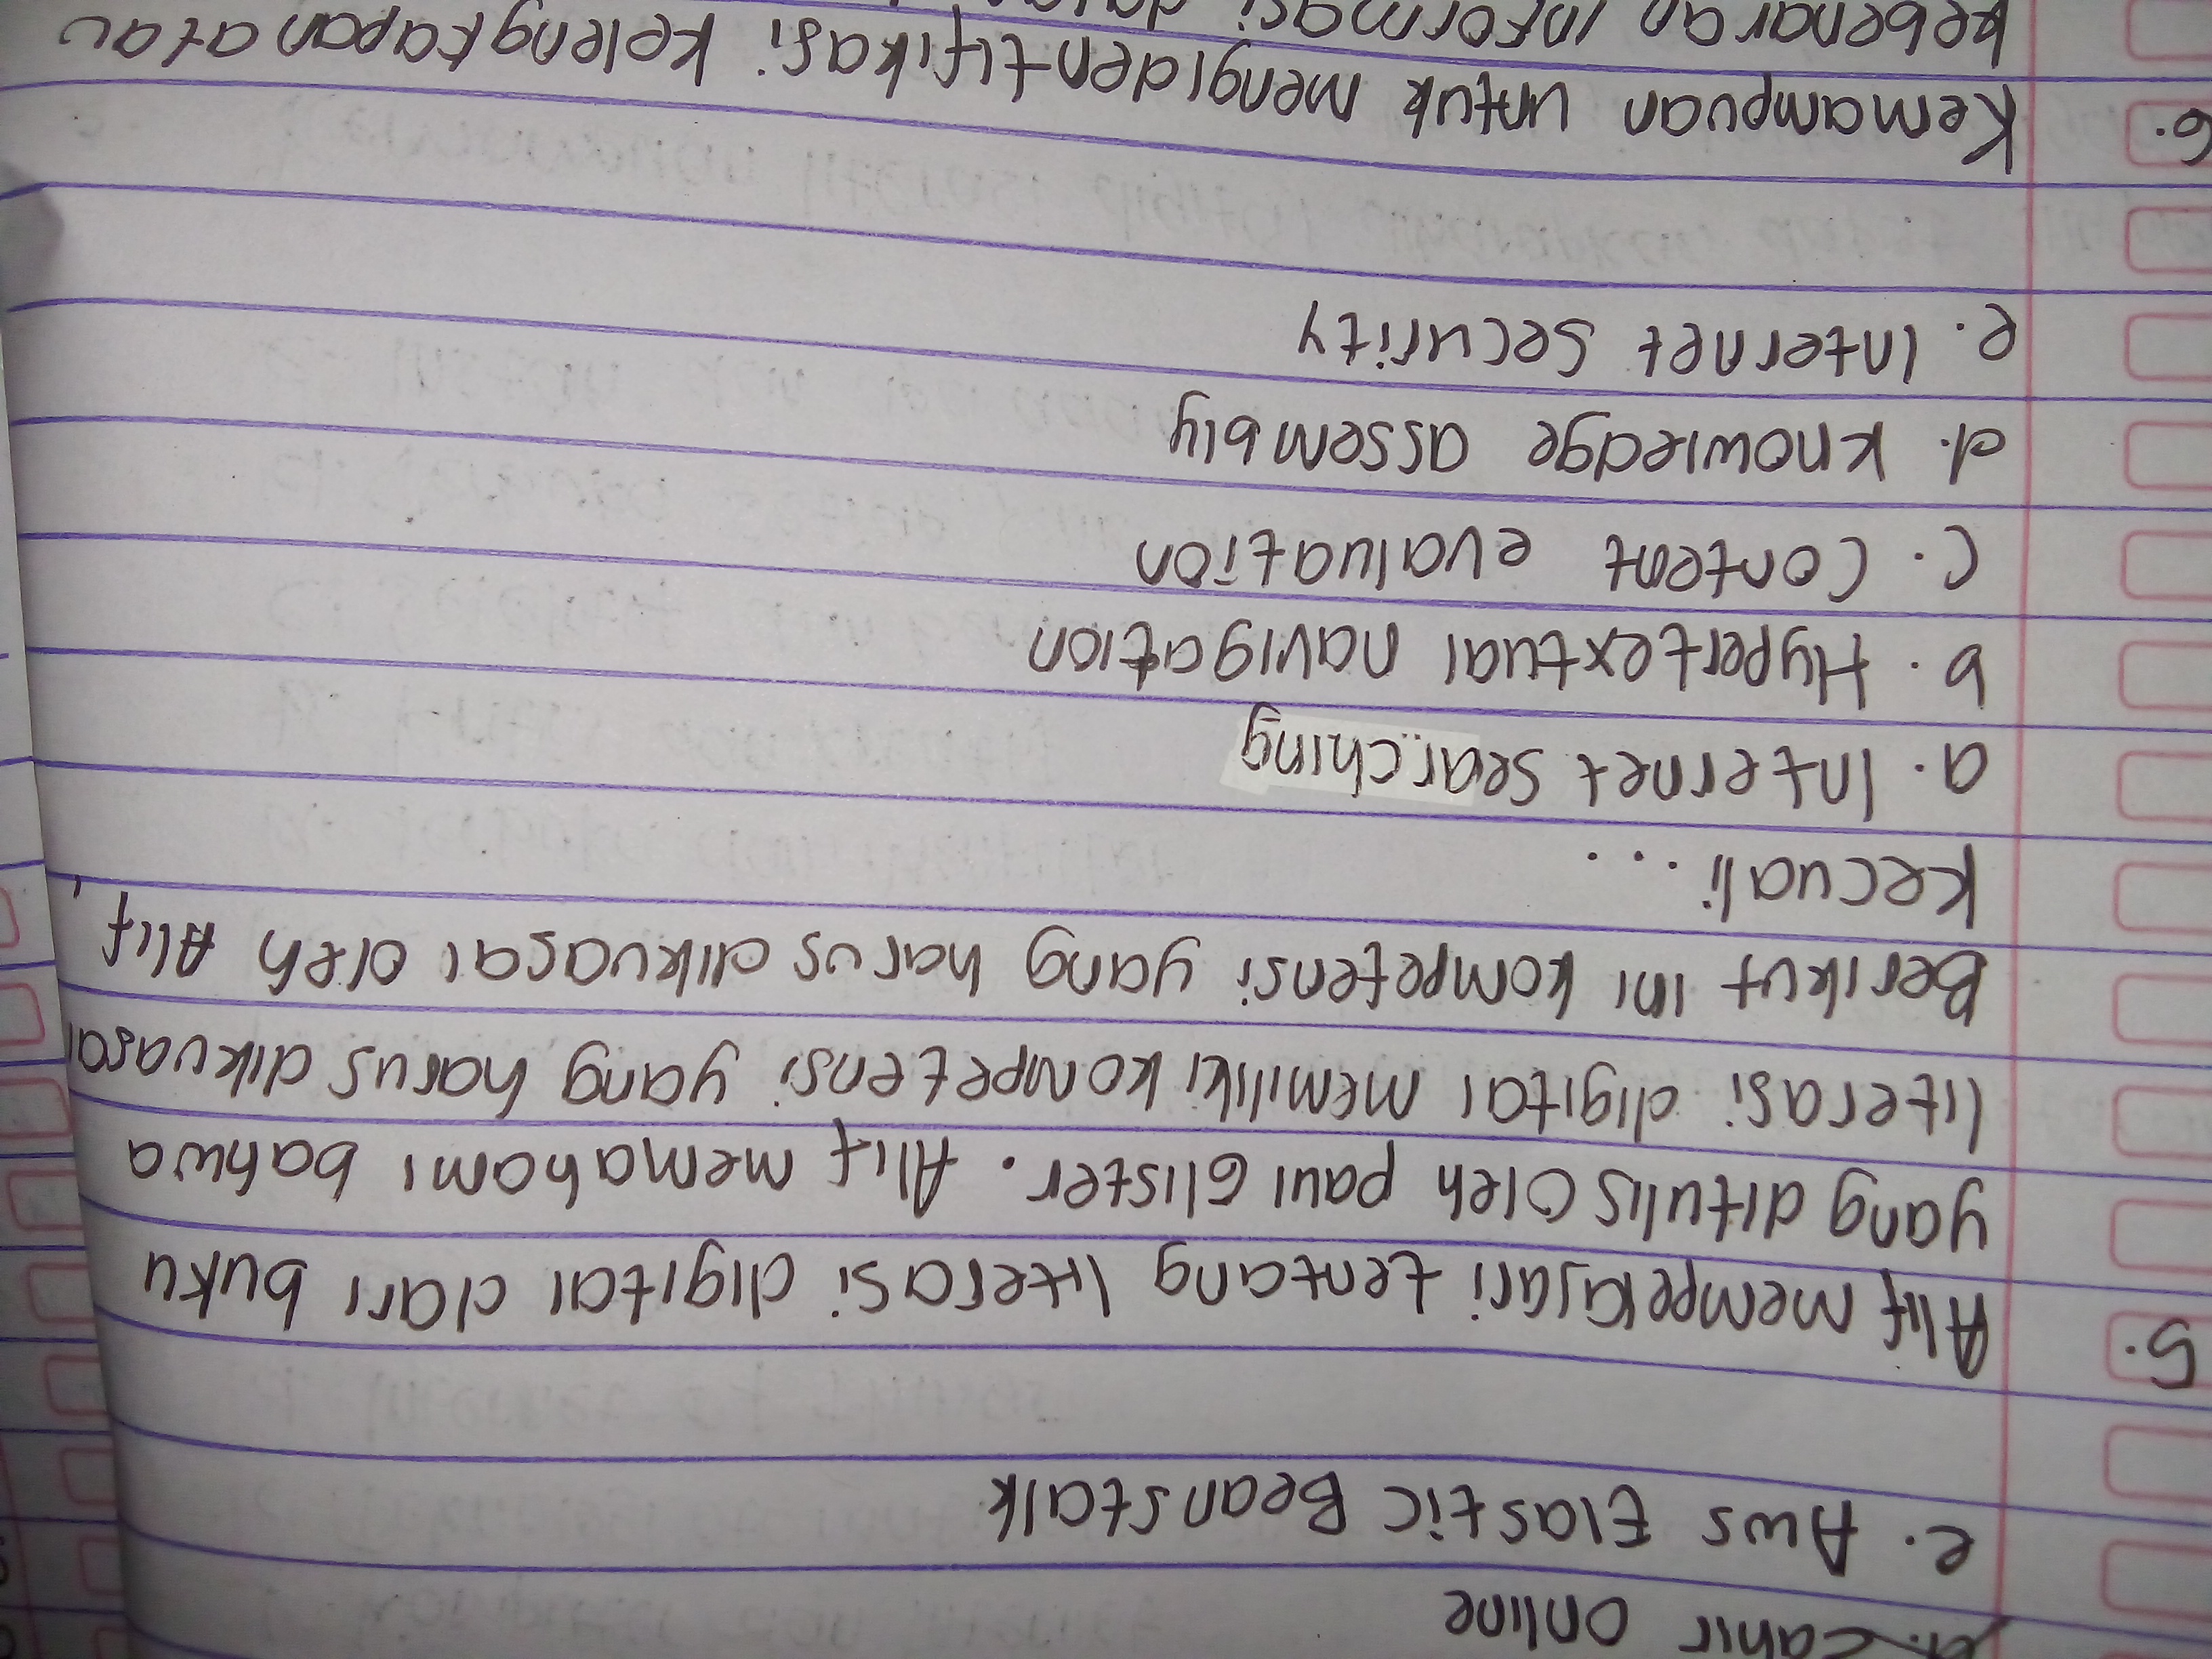 d. Zahir online
e. Aws Elastic Beanstalk
5. Alif mempelajari tentang literasi digital dari buku
yang ditulis oleh paul Glister. Alif memahami bahwa
literasi digital memiliki kompetensi yang harus dikuasai
Berikut ini kompetensi yang harus dikuasai oleh Alif,
kecuali...
a. Internet searching
b. Hypertextual navigation
c. Content evaluation
d. knowledge assembly
e. Internet security
6. Kemampuan untuk mengidentifikasi kelengkapan atau
kebenaran informasi